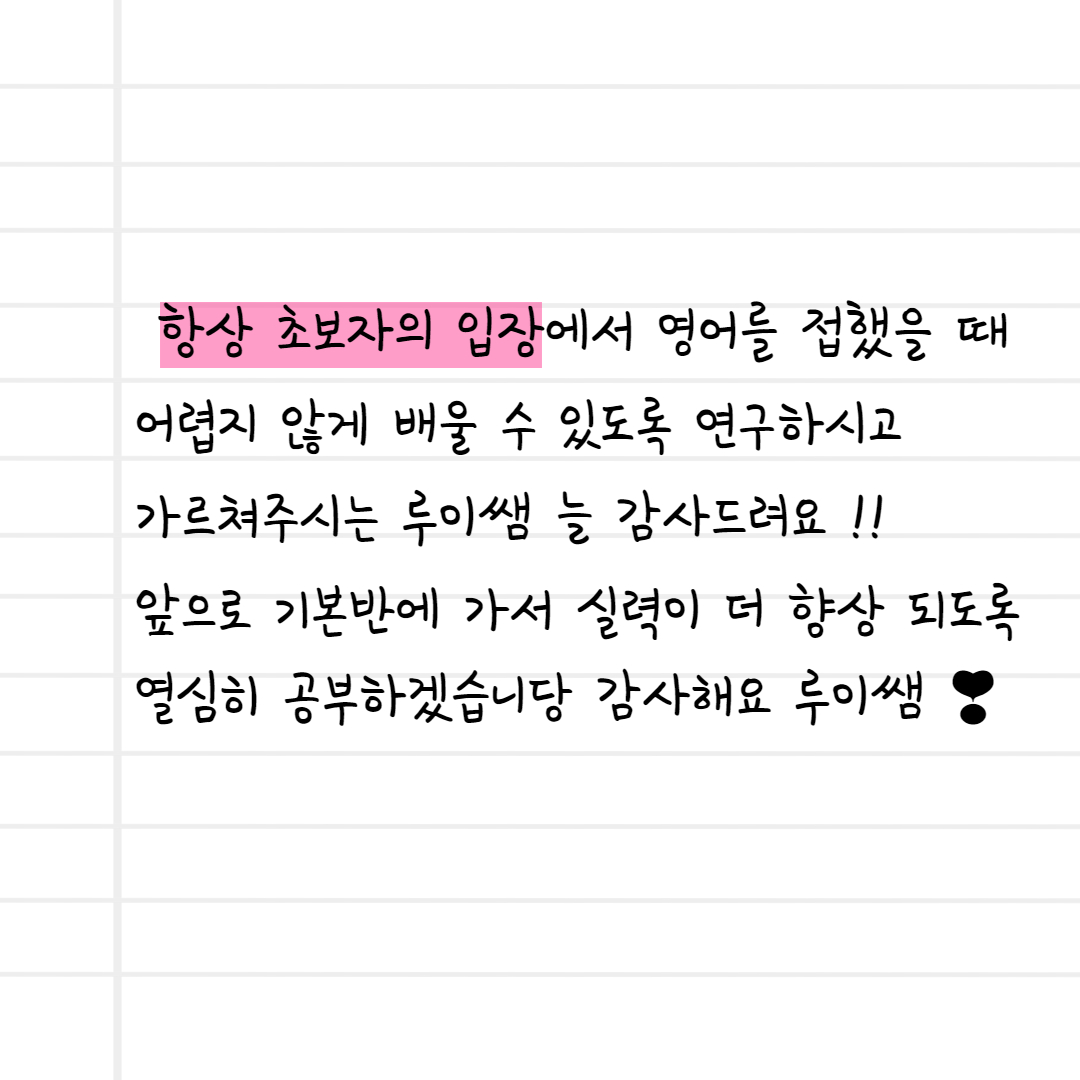 항상 초보자의 입장에서 영어를 접했을 때
어렵지 않게 배울 수 있도록 연구하시고
가르쳐주시는 루미쌤 늘 감사드려요 !!
앞으로 기본반에 가서 실력이 더 향상 되도록
열심히 공부하겠습니당 감사해요 루미쌤 ❣